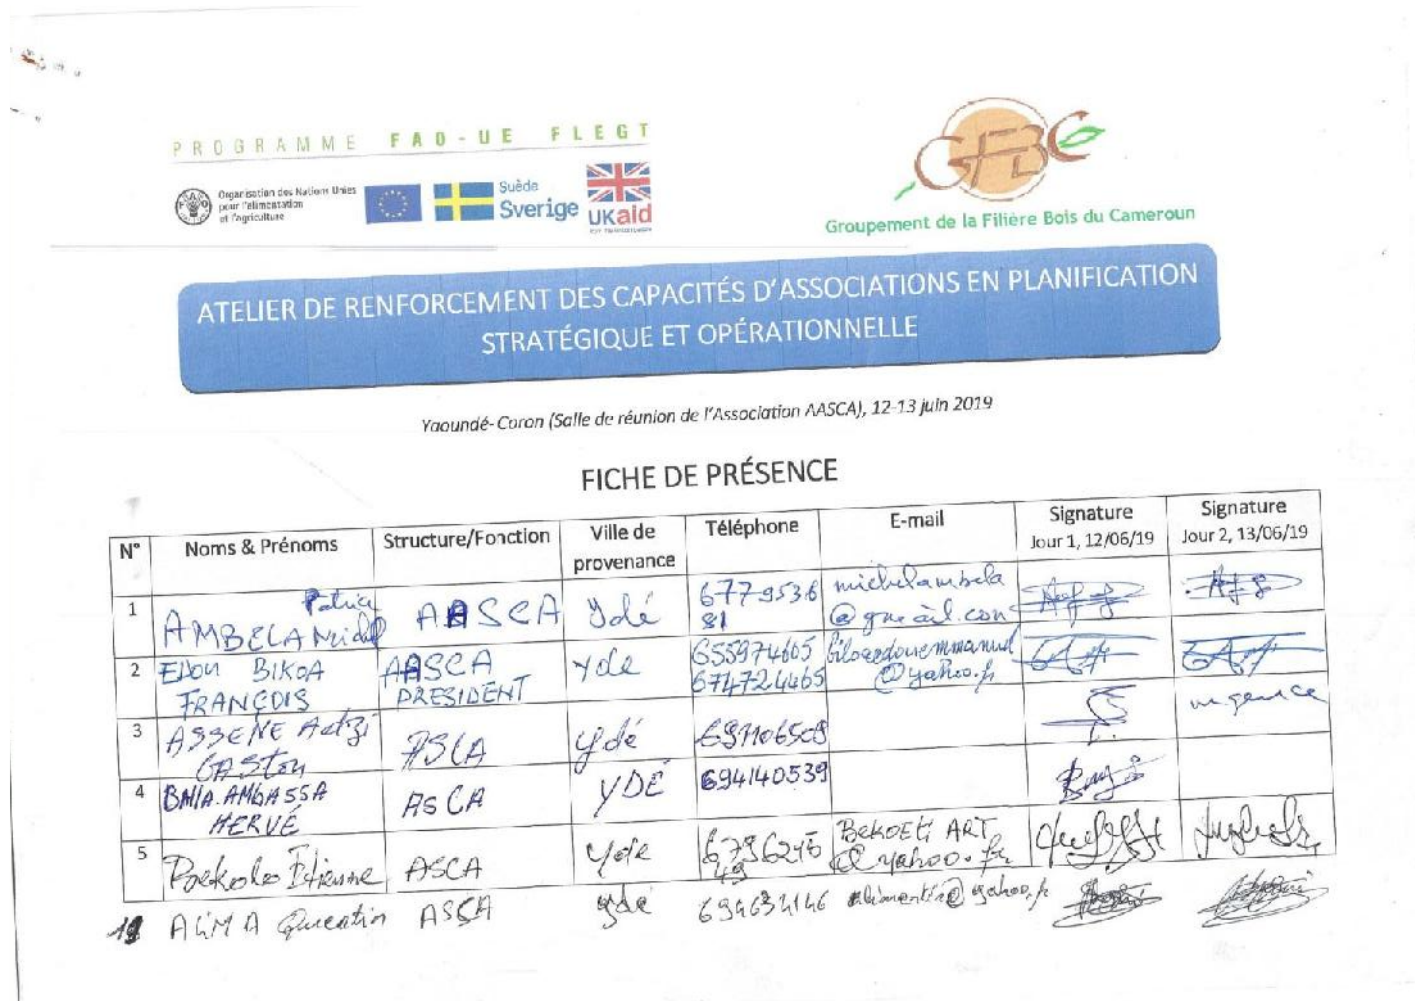 PROGRAMME FAO-UE FLEGT
Organisation des Nations Unies
pour l'alimentation
et l'agriculture
Suède
Sverige
UKaid
GFBC
Groupement de la Filière Bois du Cameroun
ATELIER DE RENFORCEMENT DES CAPACITÉS D'ASSOCIATIONS EN PLANIFICATION
STRATÉGIQUE ET OPÉRATIONNELLE
Yaoundé-Coron (Salle de réunion de l'Association AASCA), 12-13 juin 2019
FICHE DE PRÉSENCE
N° Noms & Prénoms Structure/Fonction Ville de provenance Téléphone E-mail Signature Jour 1, 12/06/19 Signature Jour 2, 13/06/19
1 AMBELA Michel Patrice AASCA Ydé 677953681 michelambela@gmail.com
2 BIKOA FRANÇOIS AASCA PRESIDENT Yde 655974605 674724465 @yahoo.fr
3 ASSENE GASton ASCA Ydé urgence
4 AMBASSA HERVÉ ASCA YDÉ 694140539
5 Etienne ASCA Yde @yahoo.fr
ALIMA Quentin ASCA ydé @yahoo.fr